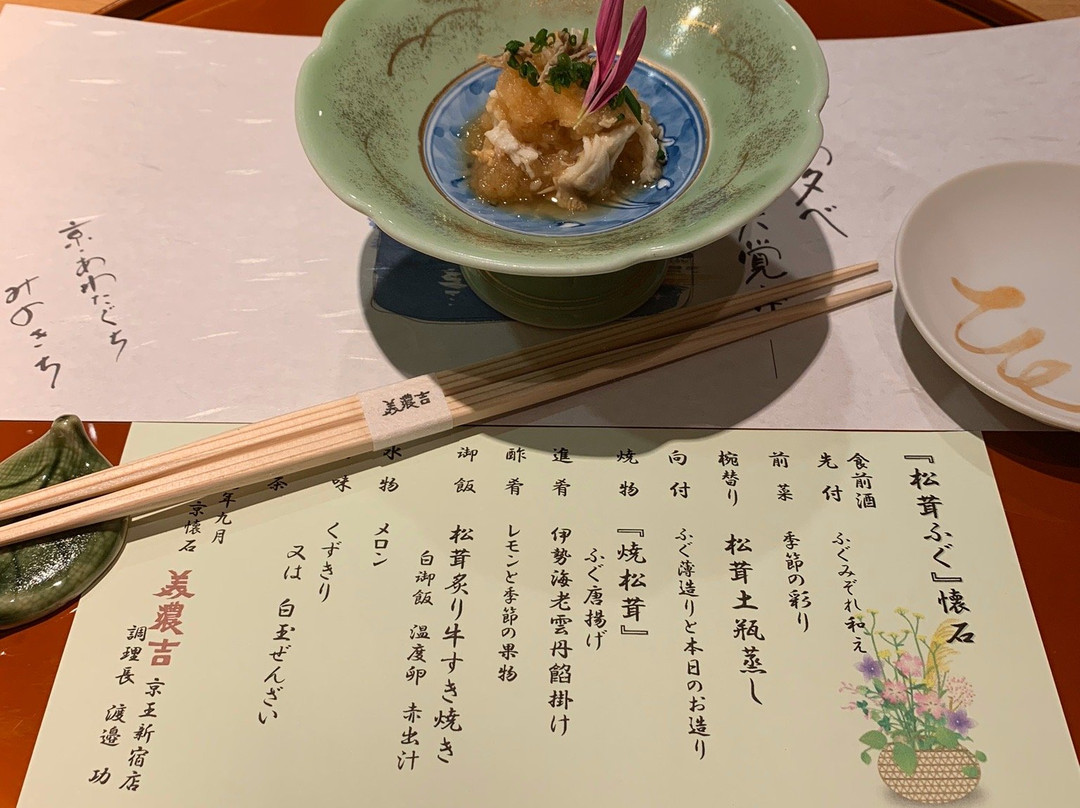 京・あわたぐち
みのきち
夕べ
覚
美濃吉
『松茸ふぐ』懐石
食前酒
先付 ふぐみぞれ和え
前菜 季節の彩り
椀替り 松茸土瓶蒸し
向付 ふぐ薄造りと本日のお造り
焼物 『焼松茸』
ふぐ唐揚げ
進肴 伊勢海老雲丹餡掛け
酢肴 レモンと季節の果物
御飯 松茸炙り牛すき焼き
白御飯 温度卵 赤出汁
水物 メロン
味 くずきり
又は 白玉ぜんざい
茶
年九月
京懐石 美濃吉 京王新宿店
調理長 渡邉 功
ひ